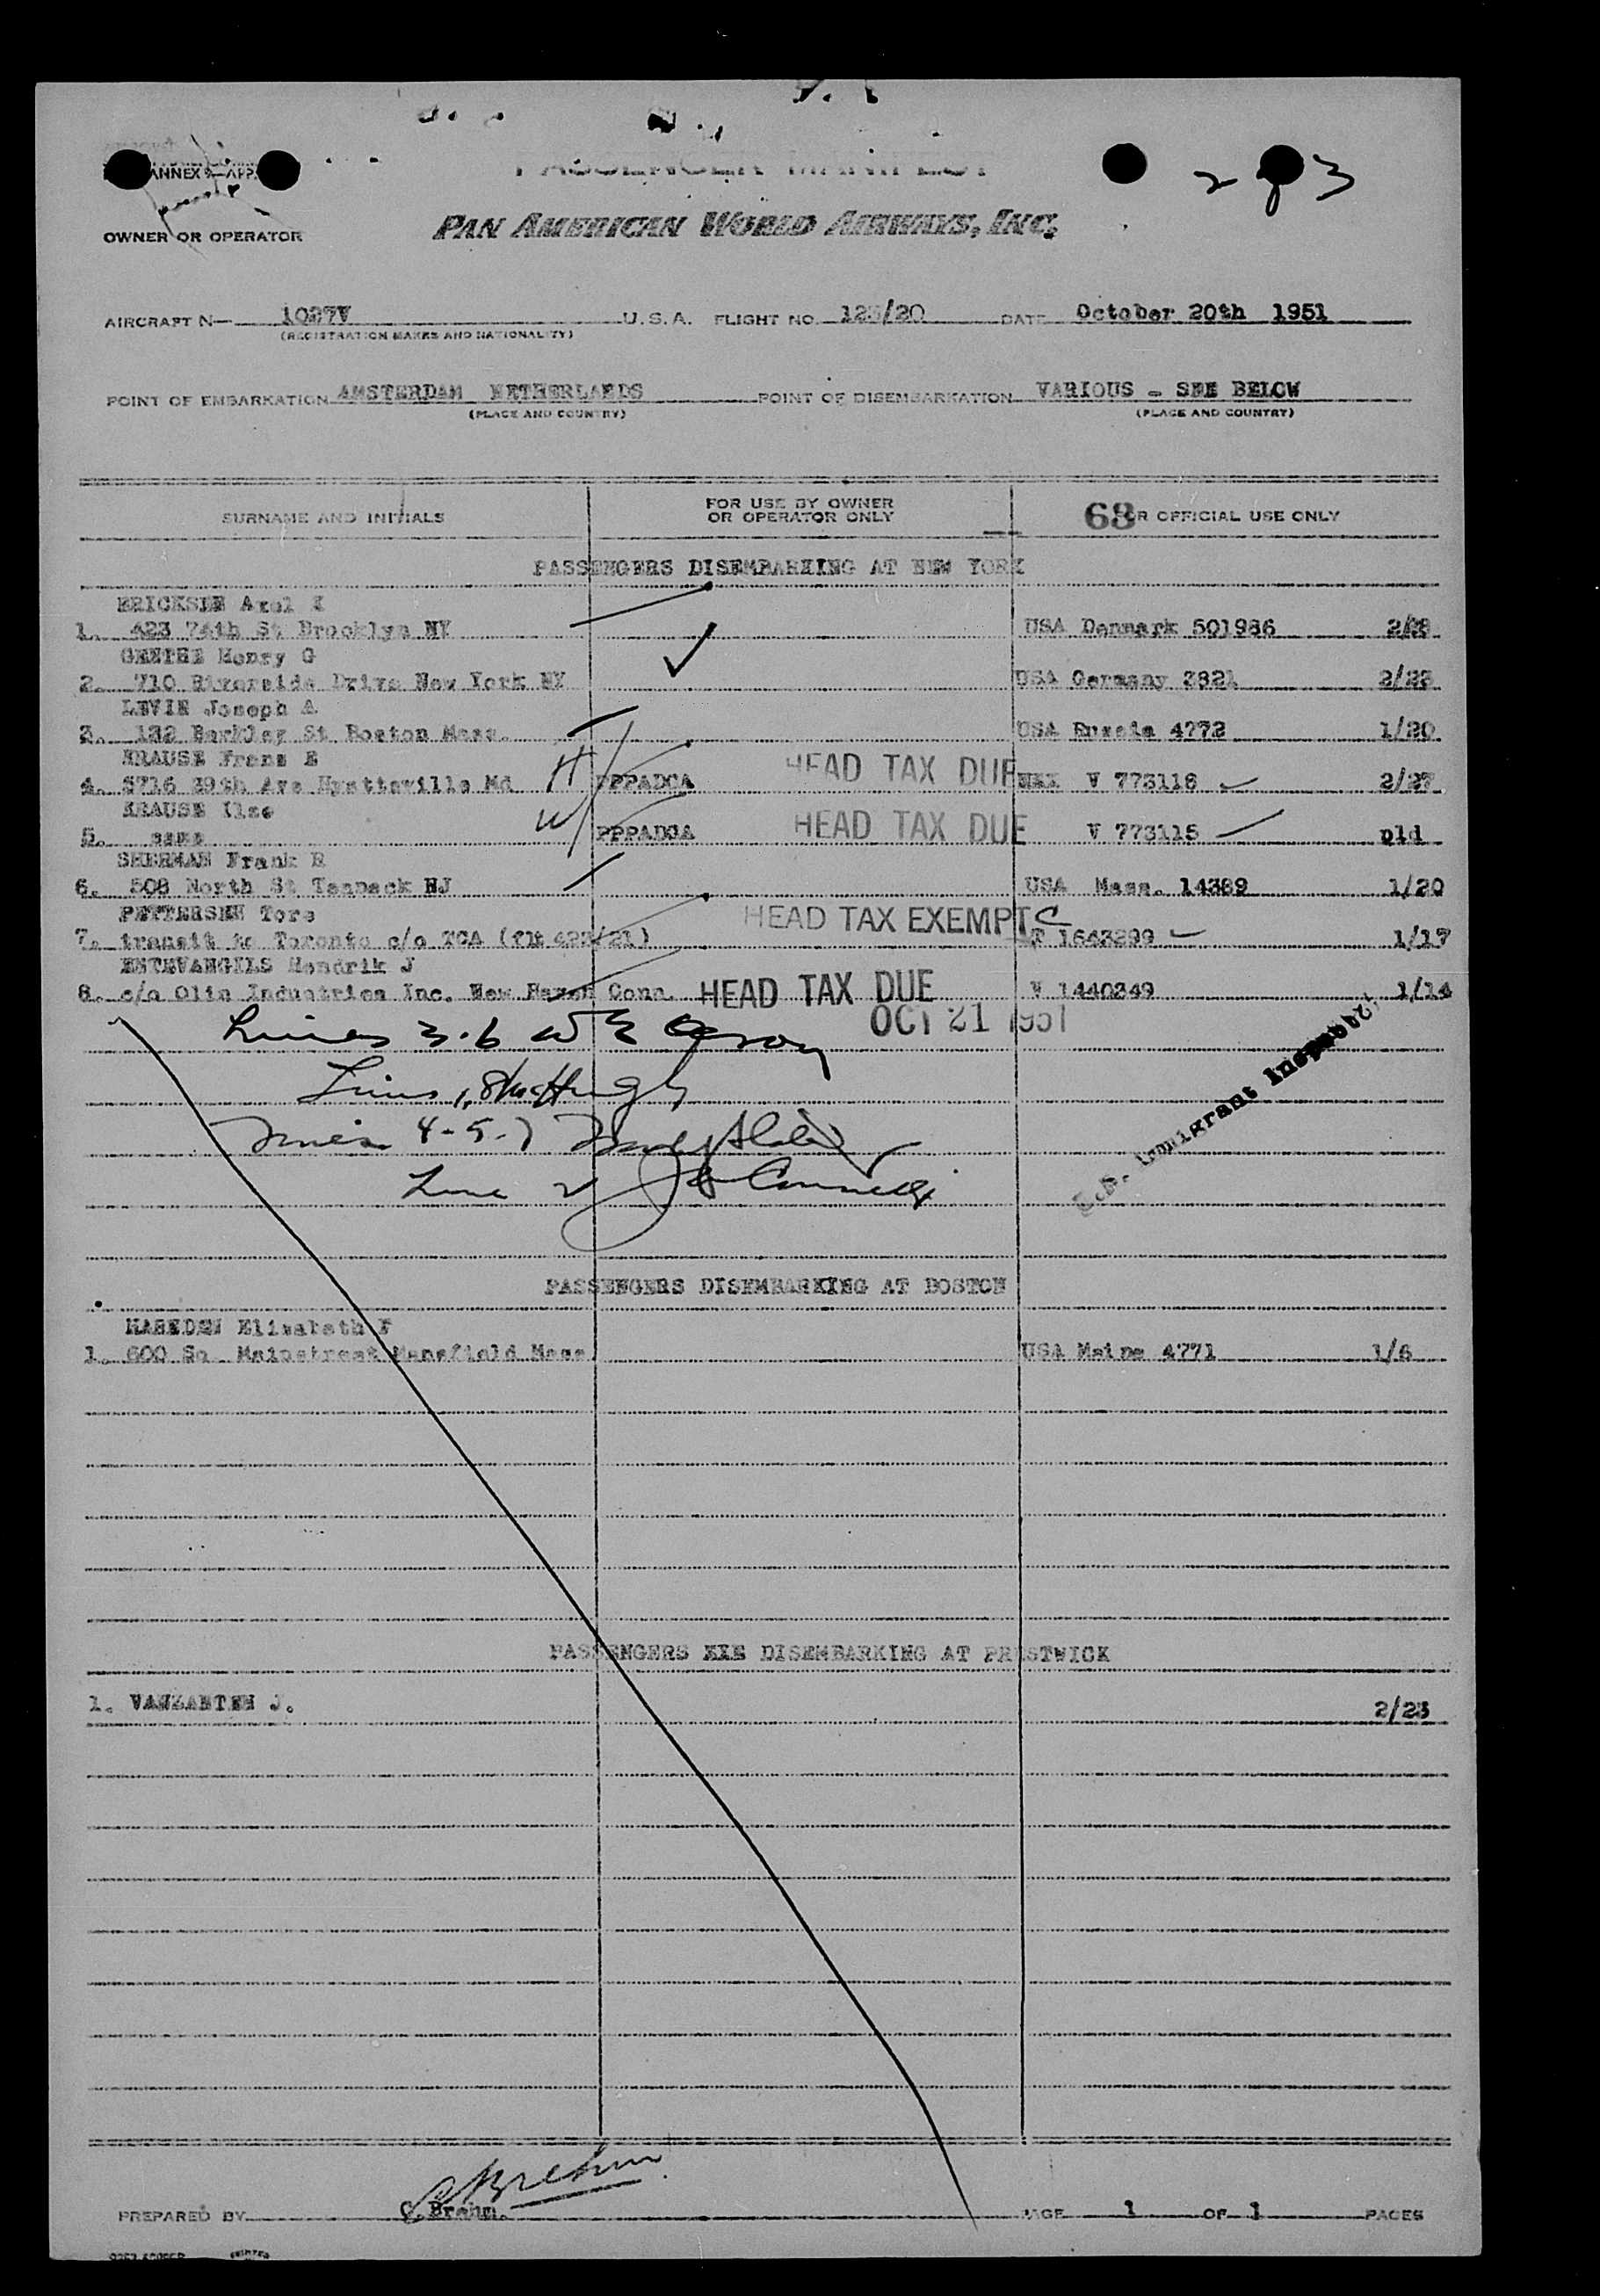 ANNEX 9—APP.
PASSENGER MANIFEST
2 of 3
OWNER OR OPERATOR
PAN AMERICAN WORLD AIRWAYS, INC.
AIRCRAFT N— 1027V U.S.A. FLIGHT NO. /20 DATE October 20th 1951
(REGISTRATION MARKS AND NATIONALITY)
POINT OF EMBARKATION AMSTERDAM NETHERLANDS POINT OF DISEMBARKATION VARIOUS - SEE BELOW
(PLACE AND COUNTRY) (PLACE AND COUNTRY)
SURNAME AND INITIALS FOR USE BY OWNER OR OPERATOR ONLY 63 R OFFICIAL USE ONLY
PASSENGERS DISEMBARKING AT NEW YORK
ERICKSEN Axel
1. 423 74th St Brooklyn NY USA Denmark 501986 2/28
Henry G
2. 710 Riverside Drive New York NY USA Germany 3821 2/23
LEVIN Joseph A
3. 132 St Boston Mass. USA Russia 4772 1/20
KRAUSE Franz E
4. 5716 29th Ave Hyattsville Md H PPPADCA HEAD TAX DUE V 773116 2/27
KRAUSE Ilse
5. same W PPPADCA HEAD TAX DUE V 773115 pld
SHERMAN Frank R
6. 508 North St Teapack NJ USA Mass. 14389 1/20
PETTERSEN Tore HEAD TAX EXEMPT C
7. transit to Toronto c/o TCA (flt 423/21) T 1643299 1/17
Hendrik J
8. c/o Olin Industries Inc. New Haven Conn. HEAD TAX DUE V 1440249 1/14
OCT 21 1951
Lines 3-6 W E
Lines 1,8
Lines 4-5-7
Line 2
U.S. Immigrant Inspector
PASSENGERS DISEMBARKING AT BOSTON
Elizabeth F
1. 600 So. Mainstreet Mansfield Mass. USA Maine 4771 1/6
PASSENGERS XXX DISEMBARKING AT PRESTWICK
1. VANZANTEN J. 2/23
PREPARED BY C. Brehm. PAGE 1 OF 1 PAGES